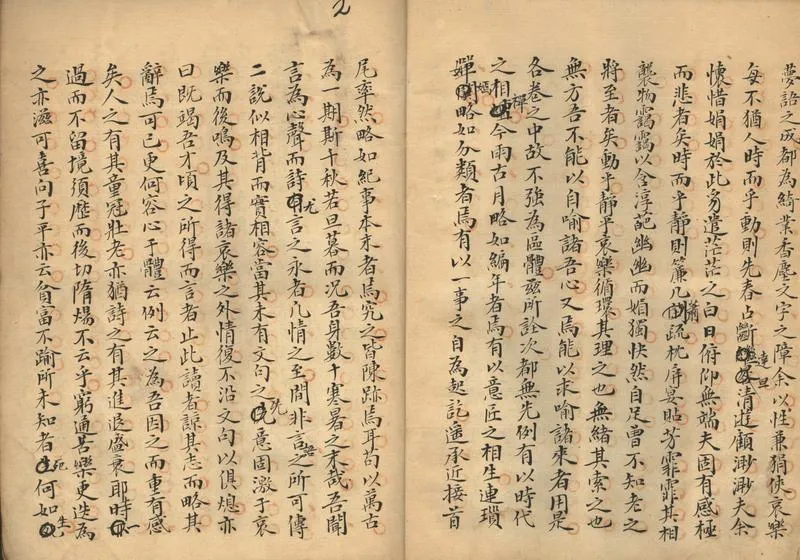 2
夢語之成都為綺業香塵文字之障余以性兼狷俠哀樂
每不猶人時而乎動則先春占斷達旦清遊顧渺渺夫余
懷惜娟娟於此豸遣茫茫之白日俯仰無端夫固有感極
而悲者矣時而乎靜則簾几蕭疏枕屏妥貼芳霏霏其相
襲物靄靄以含浮葩幽幽而媚獨快然自足曾不知老之
將至者矣動乎靜乎哀樂循環其理之也無緒其索之也
無方吾不能以自喻諸吾心又焉能以求喻諸來者用是
各卷之中故不強為區體茲所詮次都無先例有以時代
之相禪今雨古月略如編年者焉有以意匠之相生連瑣
蟬嫣略如分類者焉有以一事之自為起訖遙承近接首
尾率然略如紀事本末者焉究之皆陳跡焉耳苟以萬古
為一期斯千秋若旦暮而況吾身數十寒暑之末哉吾聞
言為心聲而詩尤言之永者凡情之至間非言語之所可傳
二說似相背而實相容當其未有文句之先意固激于哀
樂而後鳴及其得諸哀樂之外情復不沿文句以俱熄亦
曰既竭吾才頃之所得而言者止此讀者諒其志而略其
辭焉可已更何容心于體云例云之為吾因之而重有感
矣人之有其童冠壯老亦猶詩之有其進退盛衰耶時一
過而不留境須歷而後切隋煬不云乎窮通苦樂更迭為
之亦滋可喜向子平亦云貧富不踰所未知者死何如生